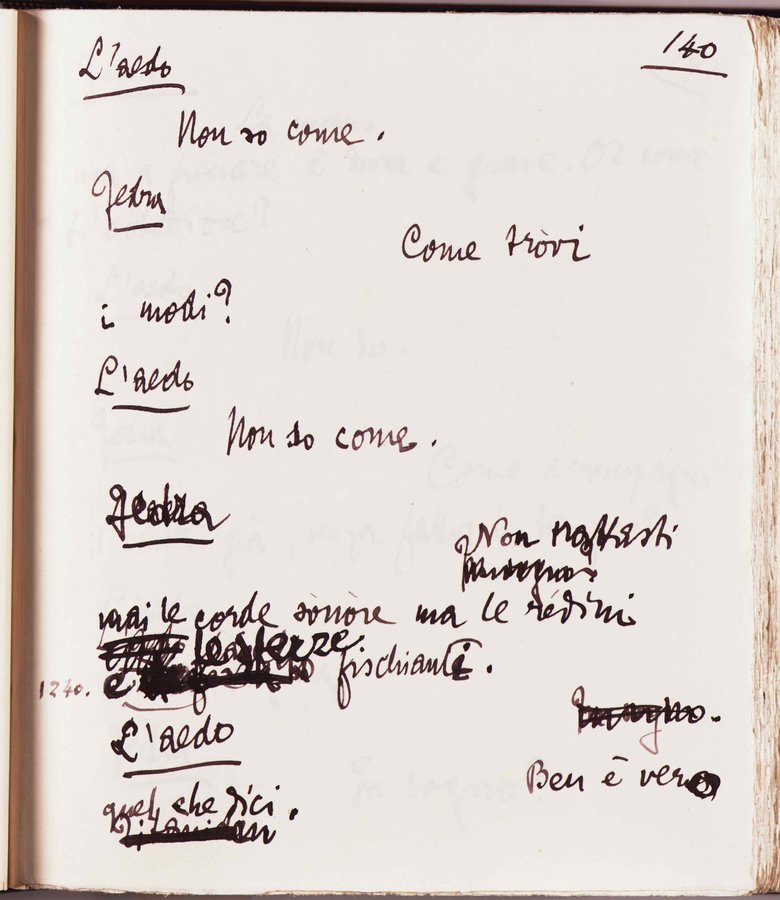 140
L'aedo
Non so come.
Fedra
Come tròvi
i modi?
L'aedo
Non so come.
Fedra
Non trattasti
mai le corde sònòre ma le rédini
le sferze
1240. e fischianti.
L'aedo
Ben è vero
quel che dici.